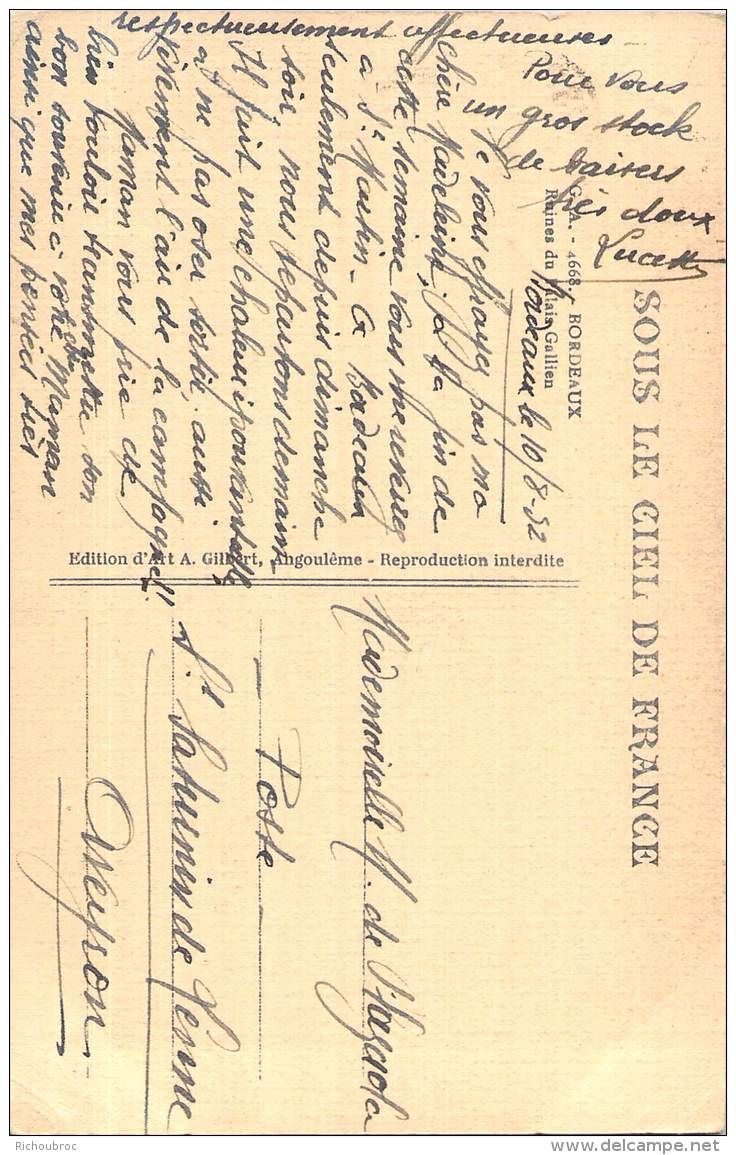 SOUS LE CIEL DE FRANCE
G. A. - 4668. - BORDEAUX
Ruines du Palais Gallien
Bordeaux le 10/8-32
Ne vous effrayez pas ma
chère Madeleine, à la fin de
cette semaine vous me
à St Martin - à Bordeaux
seulement depuis dimanche
soir, nous repartons demain
Il fait une chaleur épouvantable
à ne pas oser sortir, aussi
l'air de la campagne!!
Maman vous prie de
bien vouloir transmettre son
bon souvenir à votre Maman
ainsi que mes pensées très
respectueusement affectueuses
Pour vous
un gros stock
de baisers
très doux
Lucette
Edition d'Art A. Gilbert, Angoulême - Reproduction interdite
Mademoiselle M. de
- Poste -
St Saturnin de Lenne
Aveyron
Richoubroc
www.delcampe.net